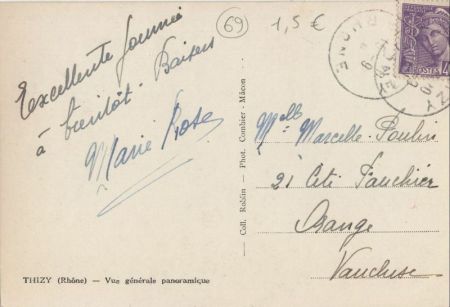 69
1,5 €
Excellente journée
à bientôt. Baisers
Marie Rose
Melle Marcelle Poulin
21 Cité Fauchier
Orange
Vaucluse
Coll. Roblin — Phot. Combier - Mâcon
THIZY (Rhône) — Vue générale panoramique
RHONE
POSTES